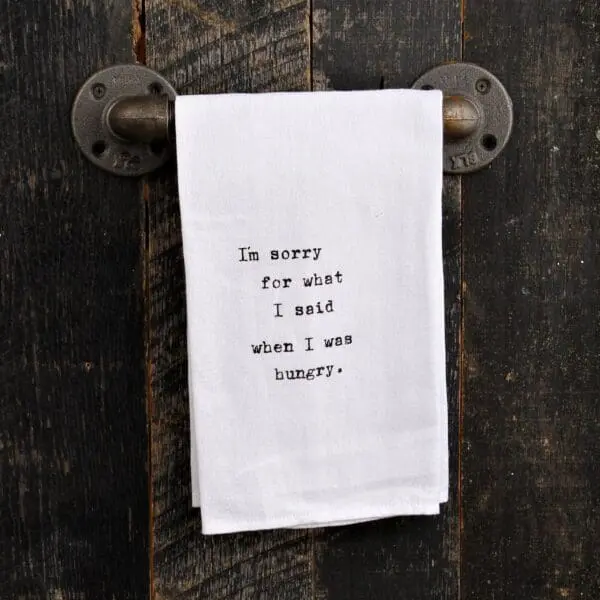 I'm sorry
for what
I said
when I was
hungry.